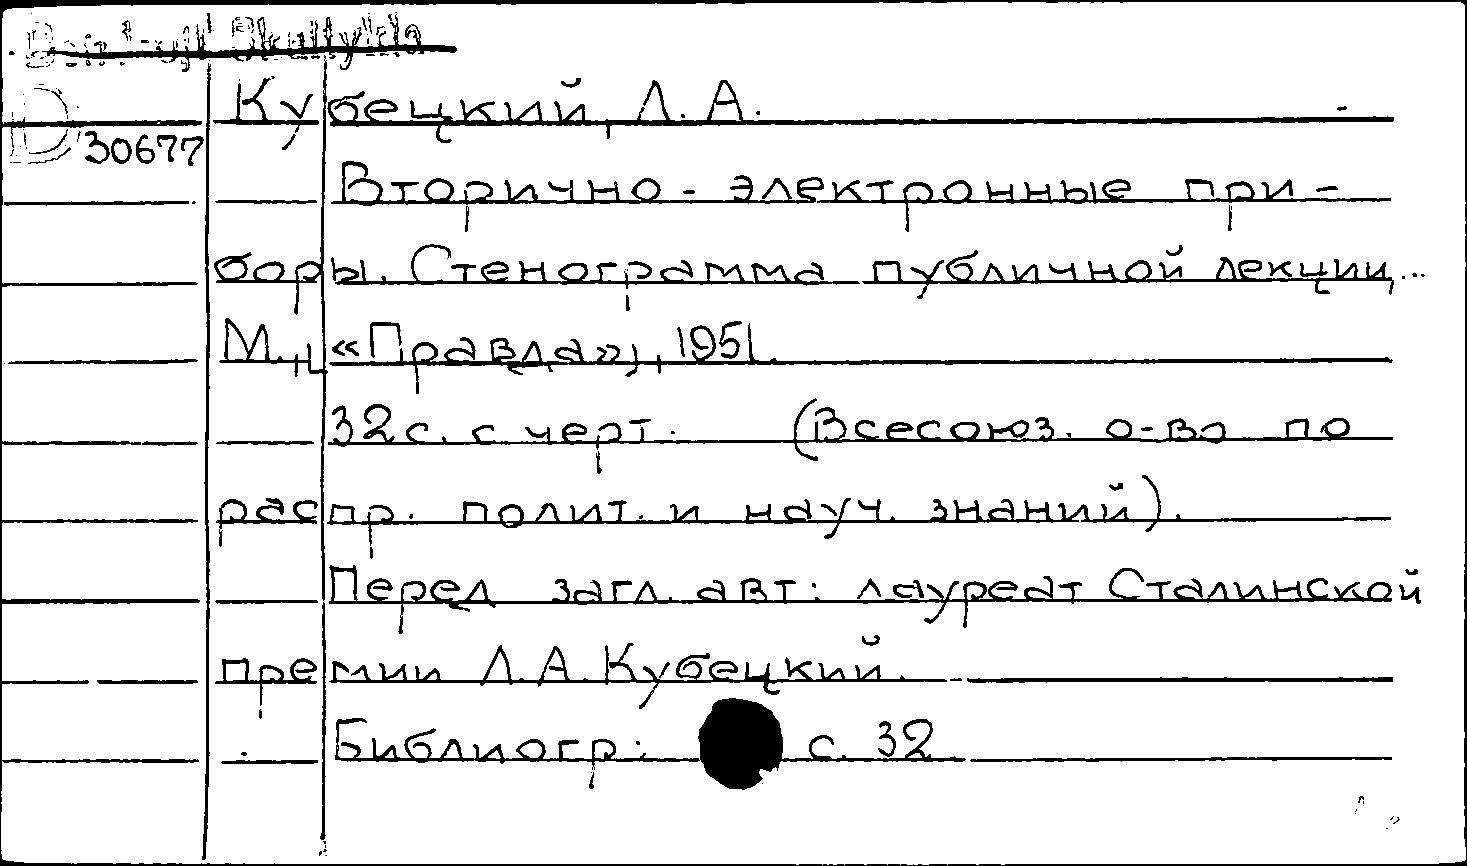 Кубецкий, Л. А.
D 30677
Вторично-электронные при-
боры. Стенограмма публичной лекции...
М., «Правда», 1951.
32 с. с черт. (Всесоюз. о-во по
распр. полит. и науч. знаний).
Перед загл. авт: лауреат Сталинской
премии Л. А. Кубецкий.
Библиогр: с. 32